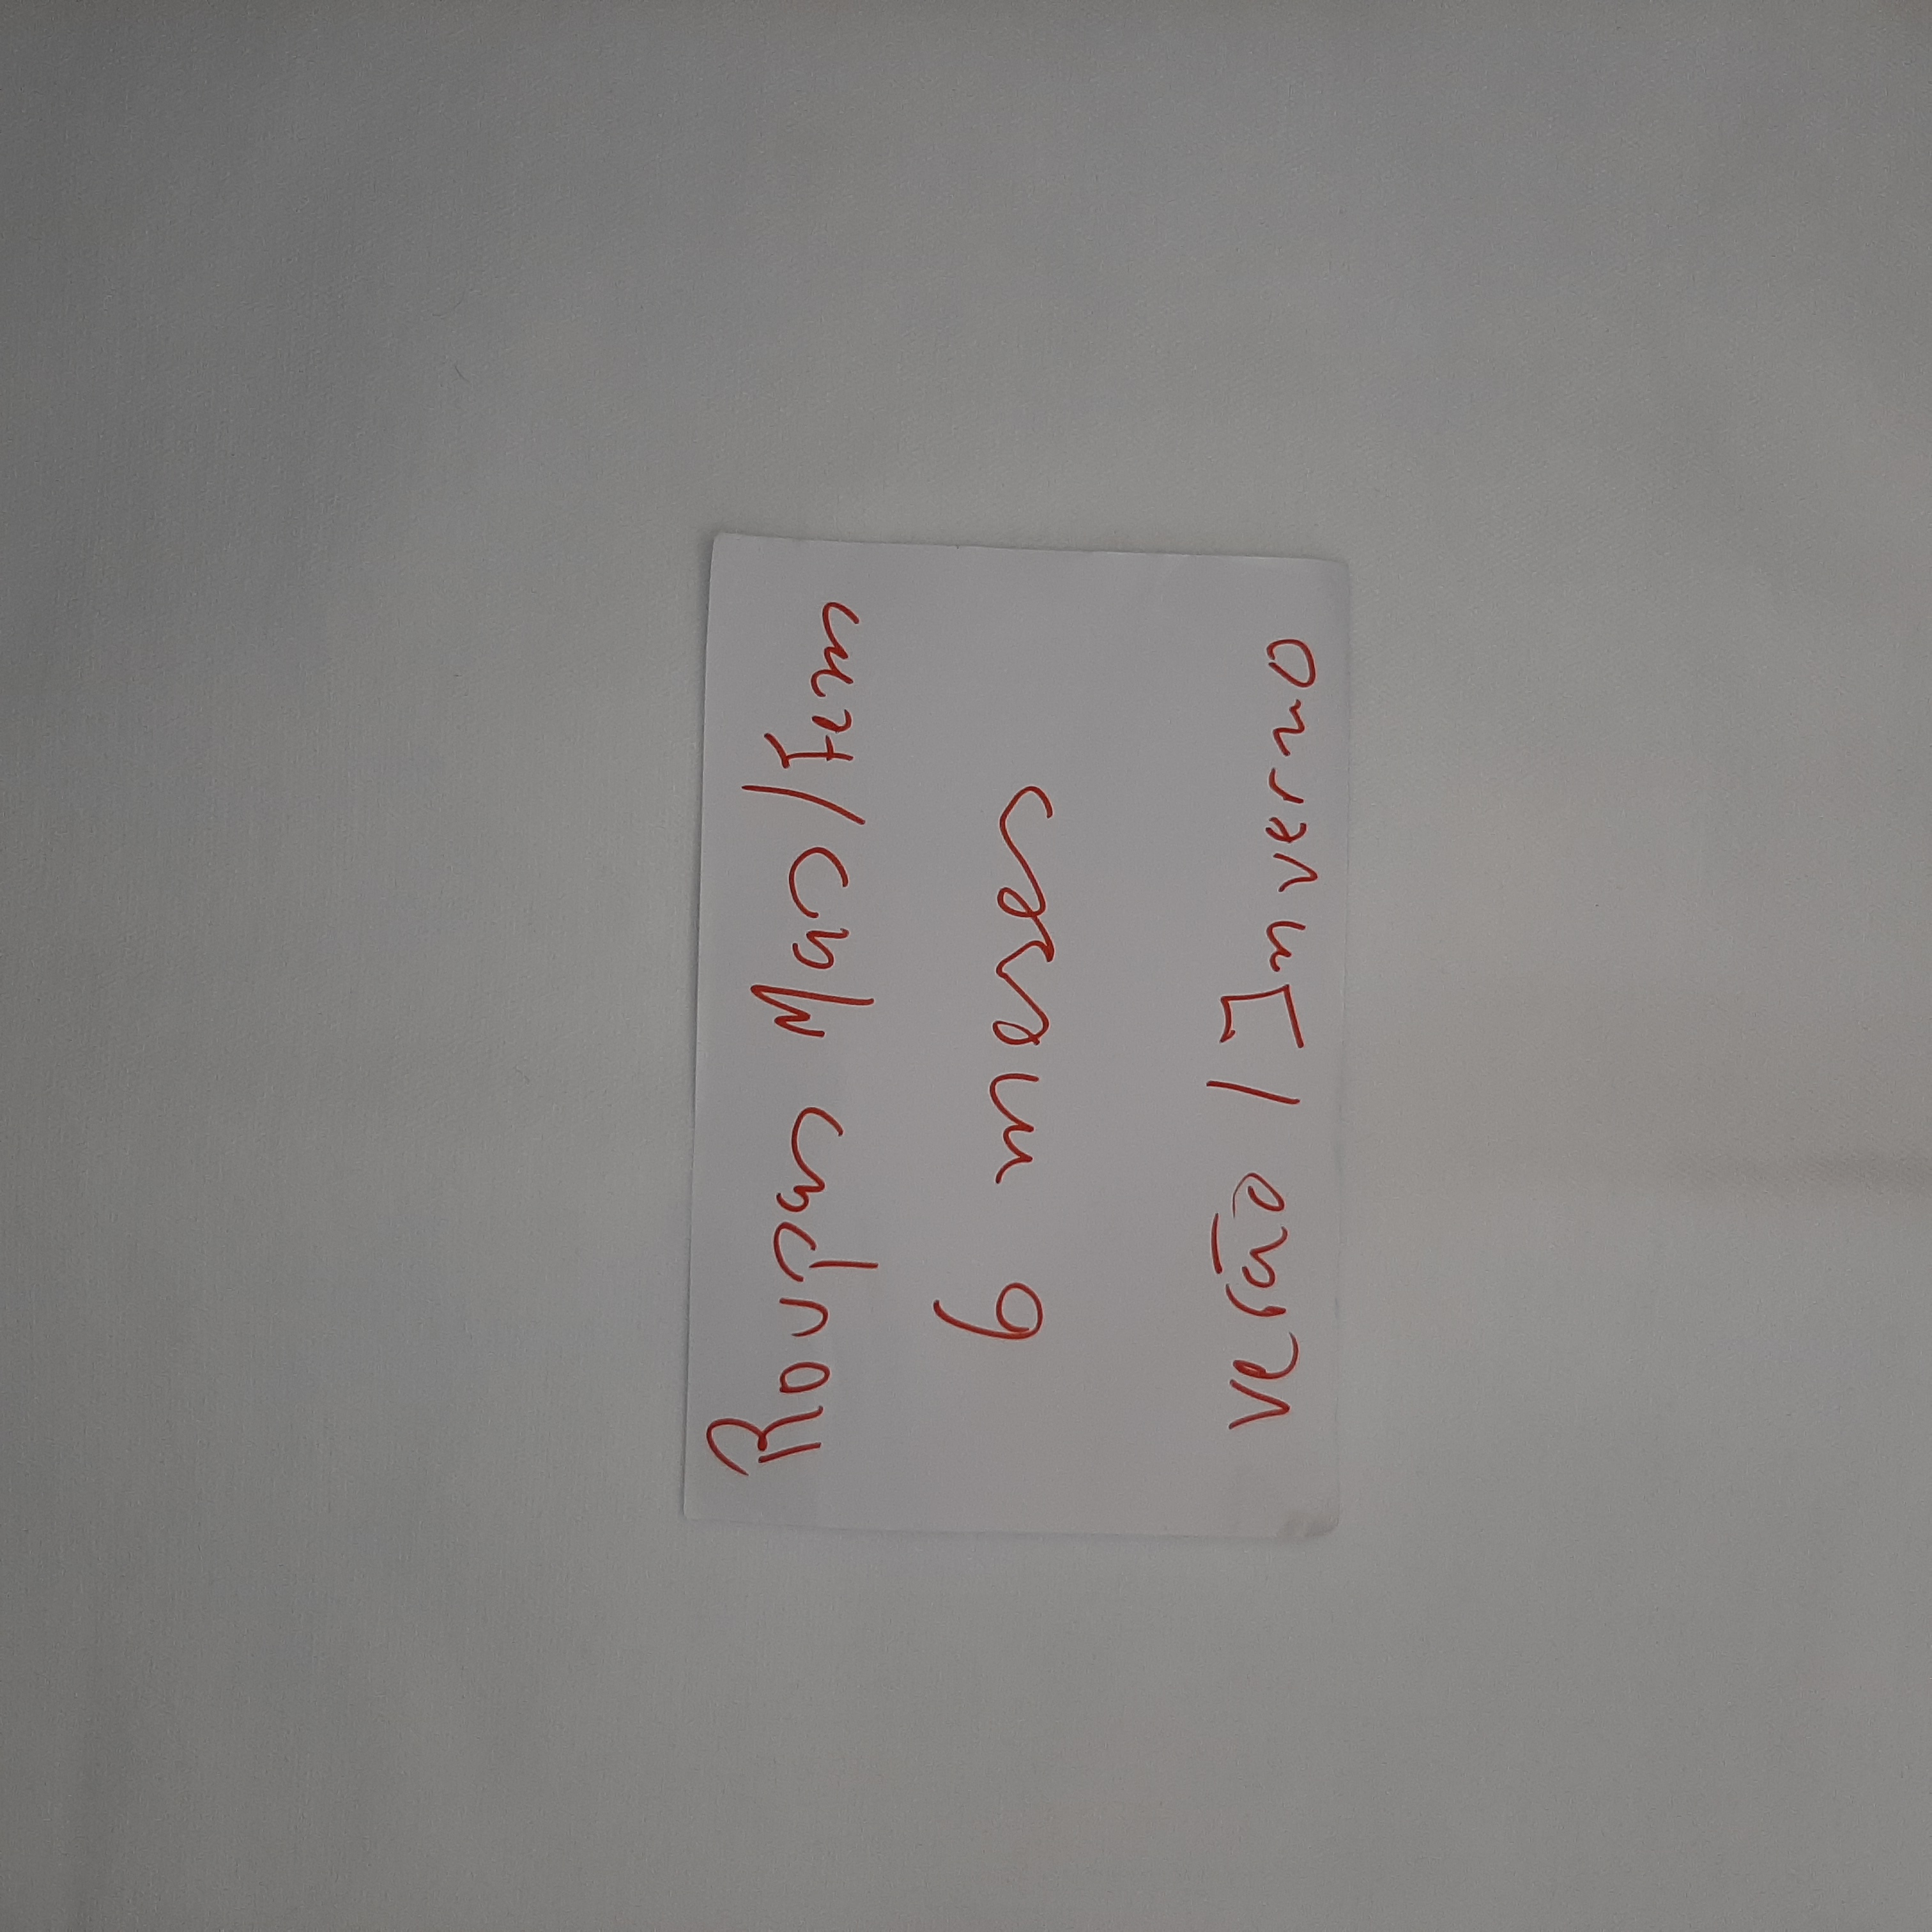 Roupas Mas/Fem
6 meses
verão / Inverno